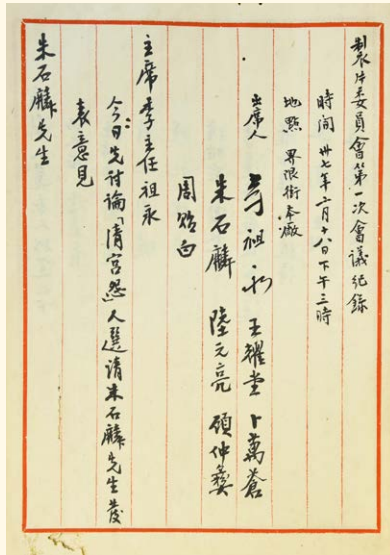 製片委員會第一次會議紀錄
時間 卅七年二月十八日下午三時
地點 界限街本廠
出席人 李祖永 王耀堂 卜萬蒼
朱石麟 陸元亮 顧仲彝
周貽白
主席李主任祖永
今日先討論「清宮怨」人選請朱石麟先生發
表意見
朱石麟先生